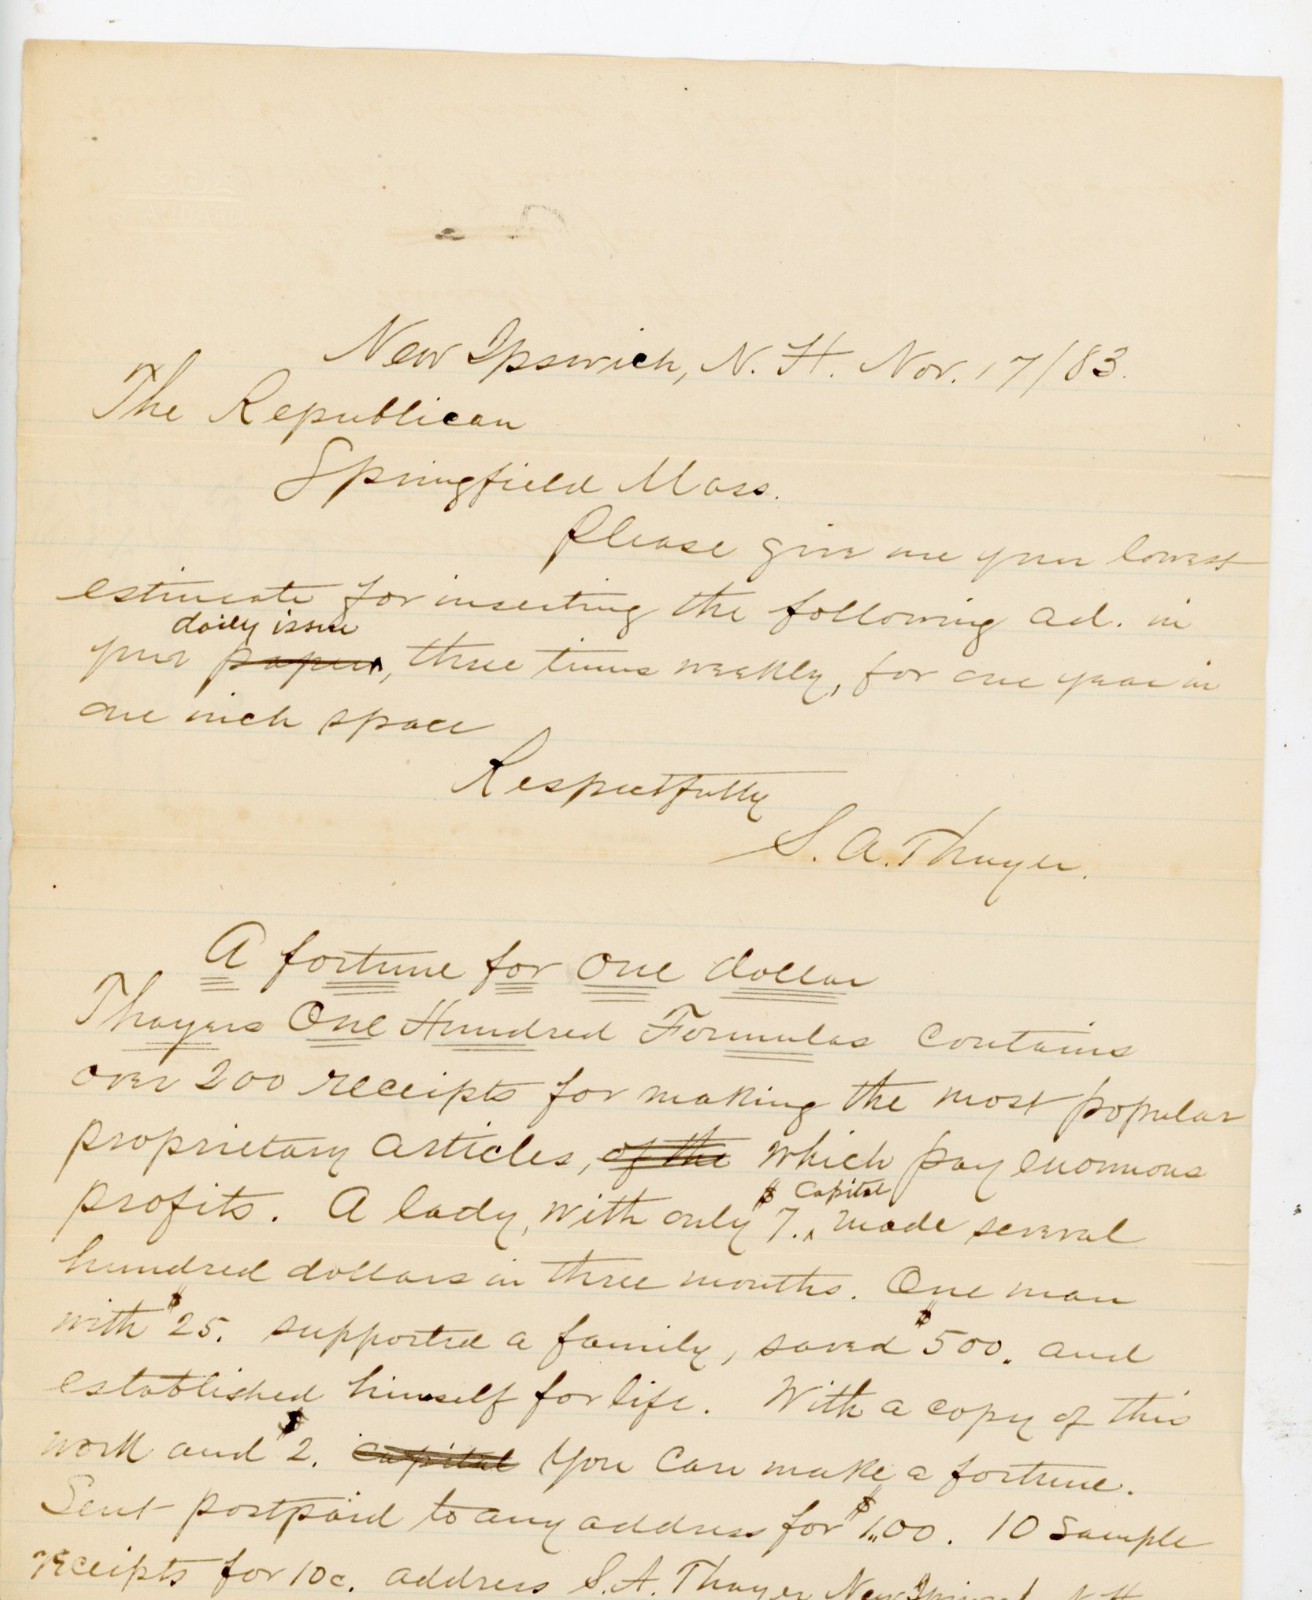 New Ipswich, N. H. Nov. 17/83.
The Republican
Springfield Mass.
Please give me your lowest
estimate for inserting the following ad. in
daily issue
your paper, three times weekly, for one year in
one inch space
Respectfully
S. A. Thayer.
A fortune for One dollar
Thayers One Hundred Formulas contains
over 200 receipts for making the most popular
proprietary articles, of the which pay enormous
profits. A lady, with only $7. capital made several
hundred dollars in three months. One man
with $25. supported a family, saved $500. and
established himself for life. With a copy of this
work and $2. capital you can make a fortune.
Sent postpaid to any address for $1.00. 10 Sample
receipts for 10c. address S. A. Thayer New Ipswich N. H.